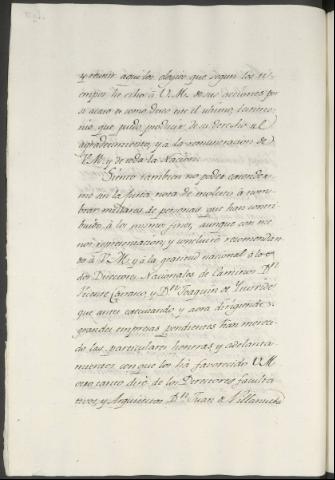 y reunir aqui los elogios que segun los ti-
empos he echo à V. M. de sus acciones por
si acaso es como deseo este el ultimo testimo-
nio que pudo producir de su derecho al
agradecimiento, y à la remuneracion de
V. M. y de toda la Nacion.
Siento tambien no poder exenderme
sin la justa nota de molesto à nom-
brar millares de personas que han contri-
buido à los mismos fines, aunque con me-
nos representacion; y concluio recomendan-
do à V. M. y à la gratitud nacional à los
dos Directores Nacionales de Caminos Dn.
Vicente Carrasco, y Dn. Joaquin de Yturbide
que antes executando y aora dirigiendo
grandes empresas pendientes han mereci-
do las particulares honras y adelanta-
mientos con que los ha favorecido V. M.
otro tanto digo de los Directores faculta-
tivos, y Arquitectos Dn. Juan de Villanueba